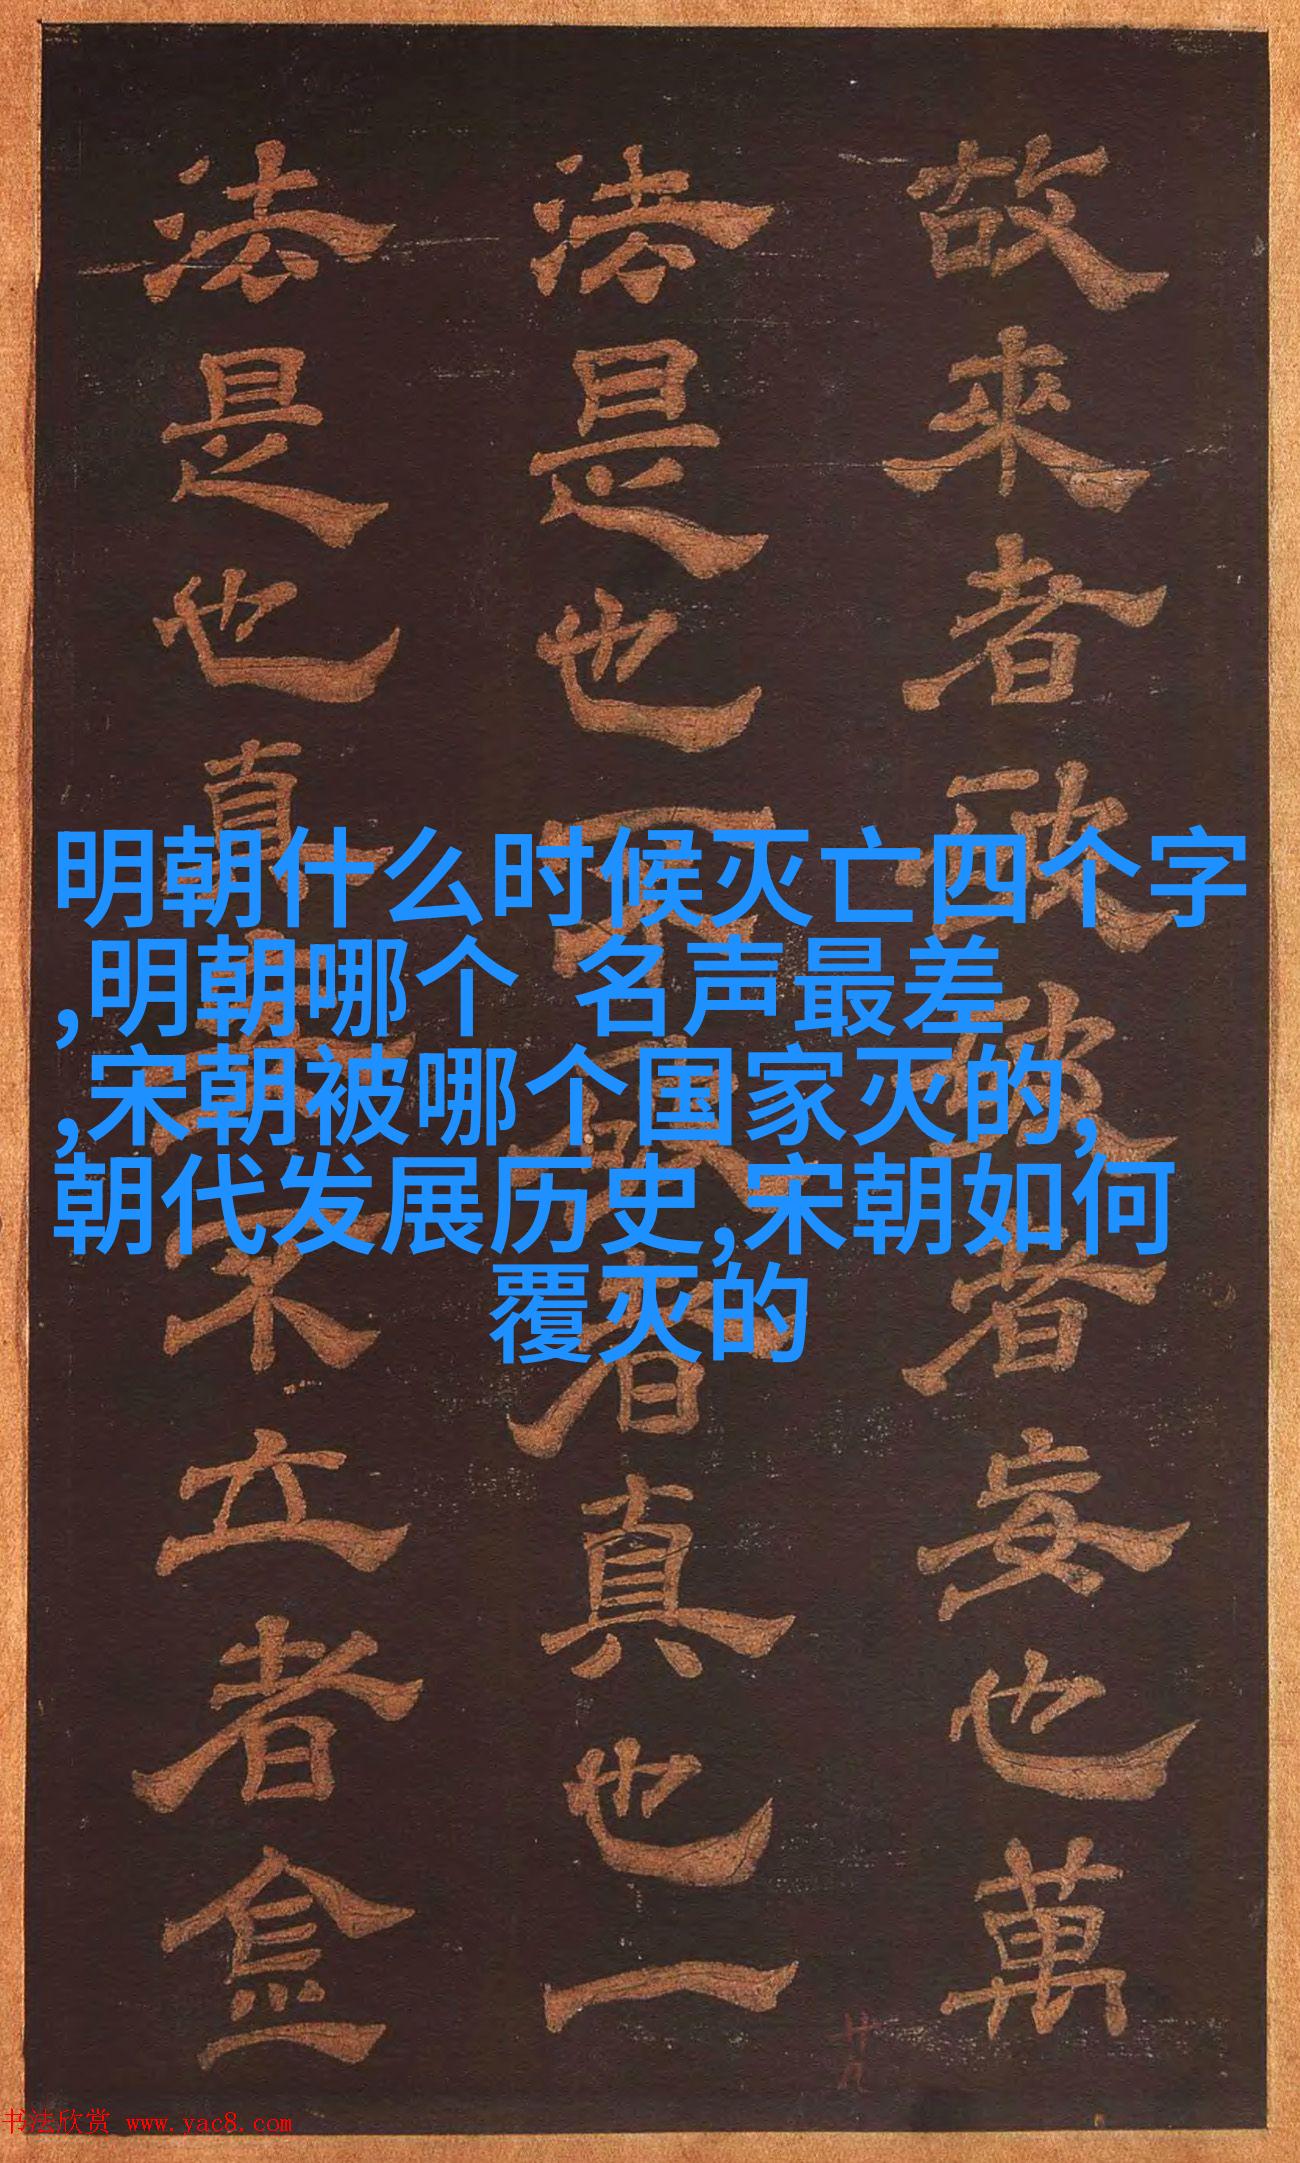 明朝什么时候灭亡四个字
,明朝哪个 名声最差
,宋朝被哪个国家灭的,
朝代发展历史,宋朝如何
覆灭的
故来者欲破者妄也萬
法是也不破者真也一
法是也真妄不立者盒
廿九
书法欣赏 www.yac8.com